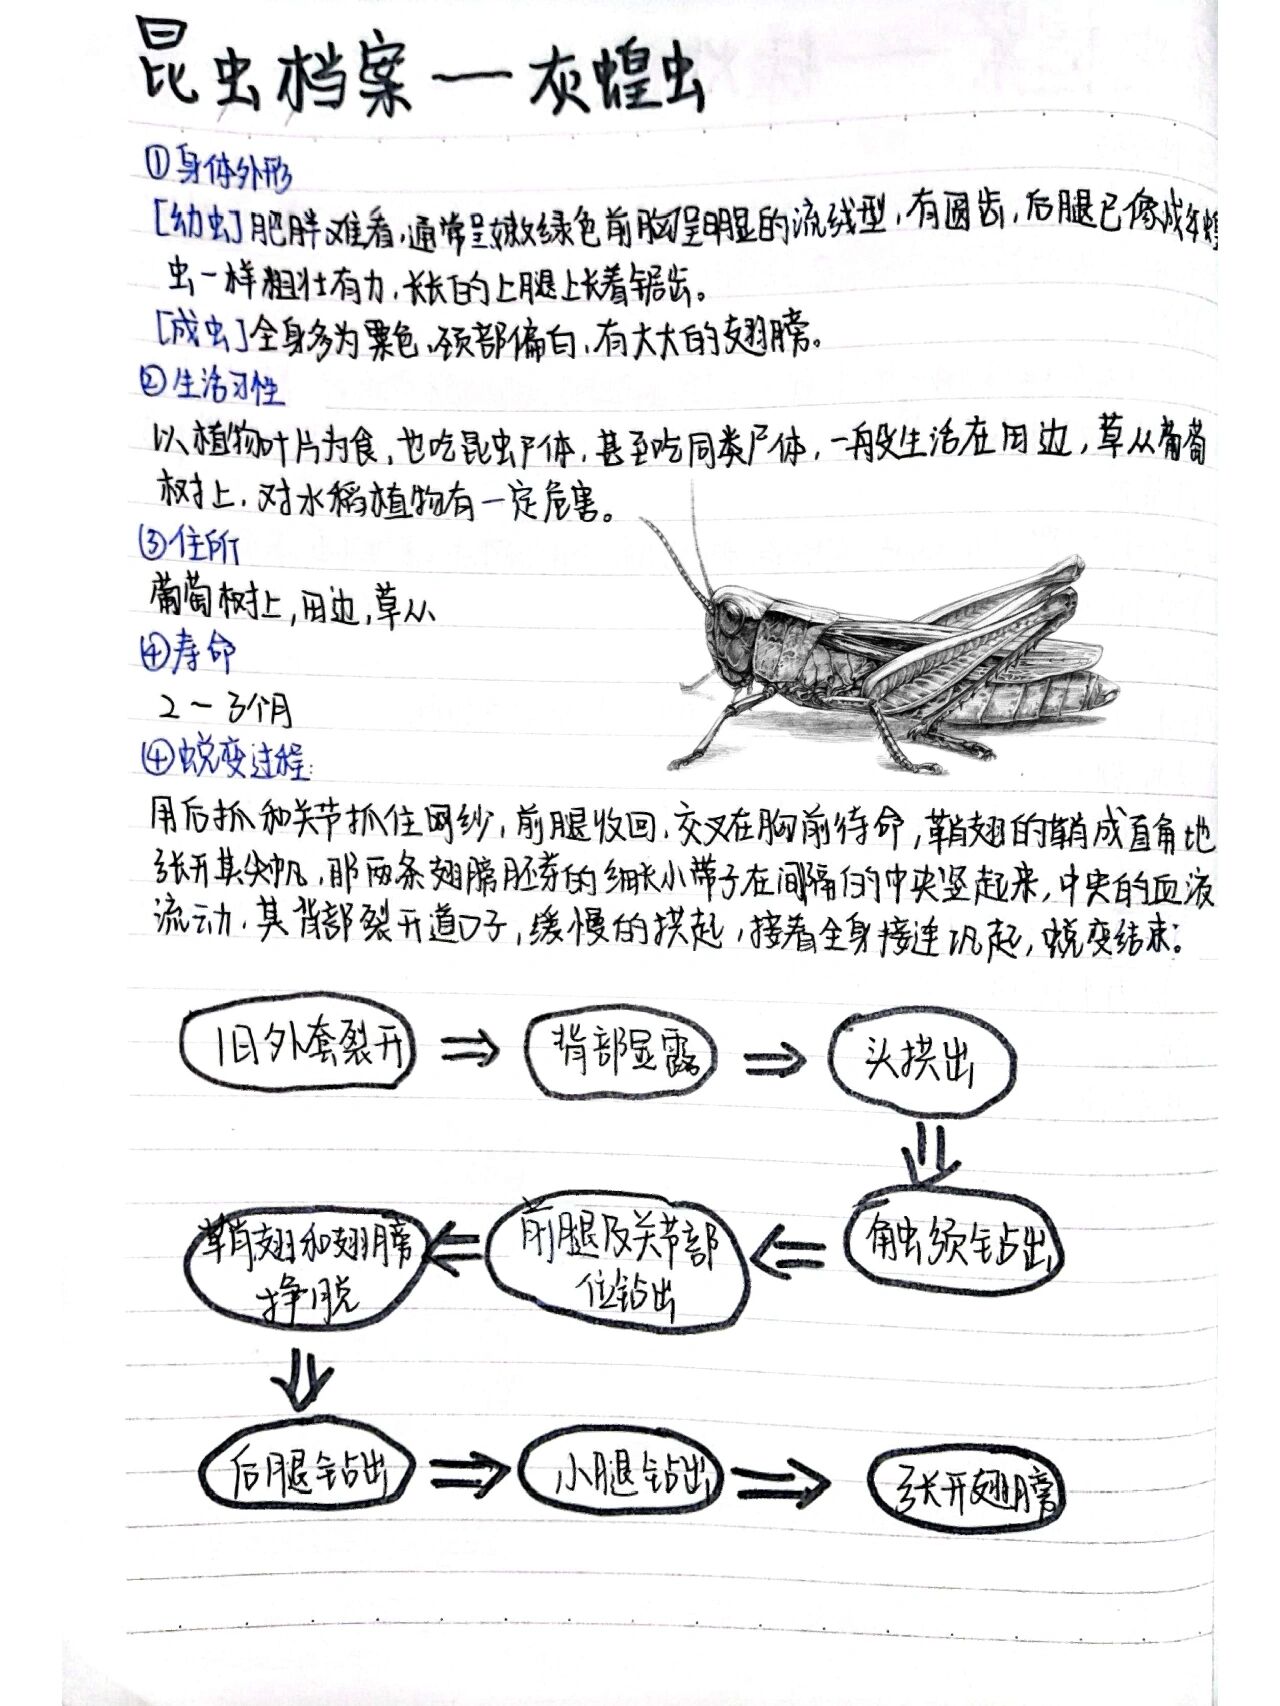 昆虫档案一灰蝗虫
①身体外形
[幼虫]肥胖难看，通常呈嫩绿色前胸呈明显的流线型，有圆齿，后腿已像成年蝗
虫一样粗壮有力，长长的上腿上长着锯齿。
[成虫]全身多为栗色，颈部偏白，有大大的翅膀。
②生活习性
以植物叶片为食，也吃昆虫尸体，甚至吃同类尸体，一般生活在田边，草从葡萄
树上，对水稻植物有一定危害。
③住所
葡萄树上，田边，草从
④寿命
2～3个月
④蜕变过程：
用后抓和关节抓住网纱，前腿收回，交叉在胸前待命，鞘翅的鞘成直角地
张开其尖帆，那两条翅膀胚芽的细长小带子在间隔的中央竖起来，中央的血液
流动，其背部裂开道口子，缓慢的拱起，接着全身接连巩起，蜕变结束。
旧外套裂开 ⇒ 背部显露 ⇒ 头拱出
⇓
鞘翅和翅膀挣脱 ⇐ 前腿及关节部位钻出 ⇐ 角虫须钻出
⇓
后腿钻出 ⇒ 小腿钻出 ⇒ 张开翅膀